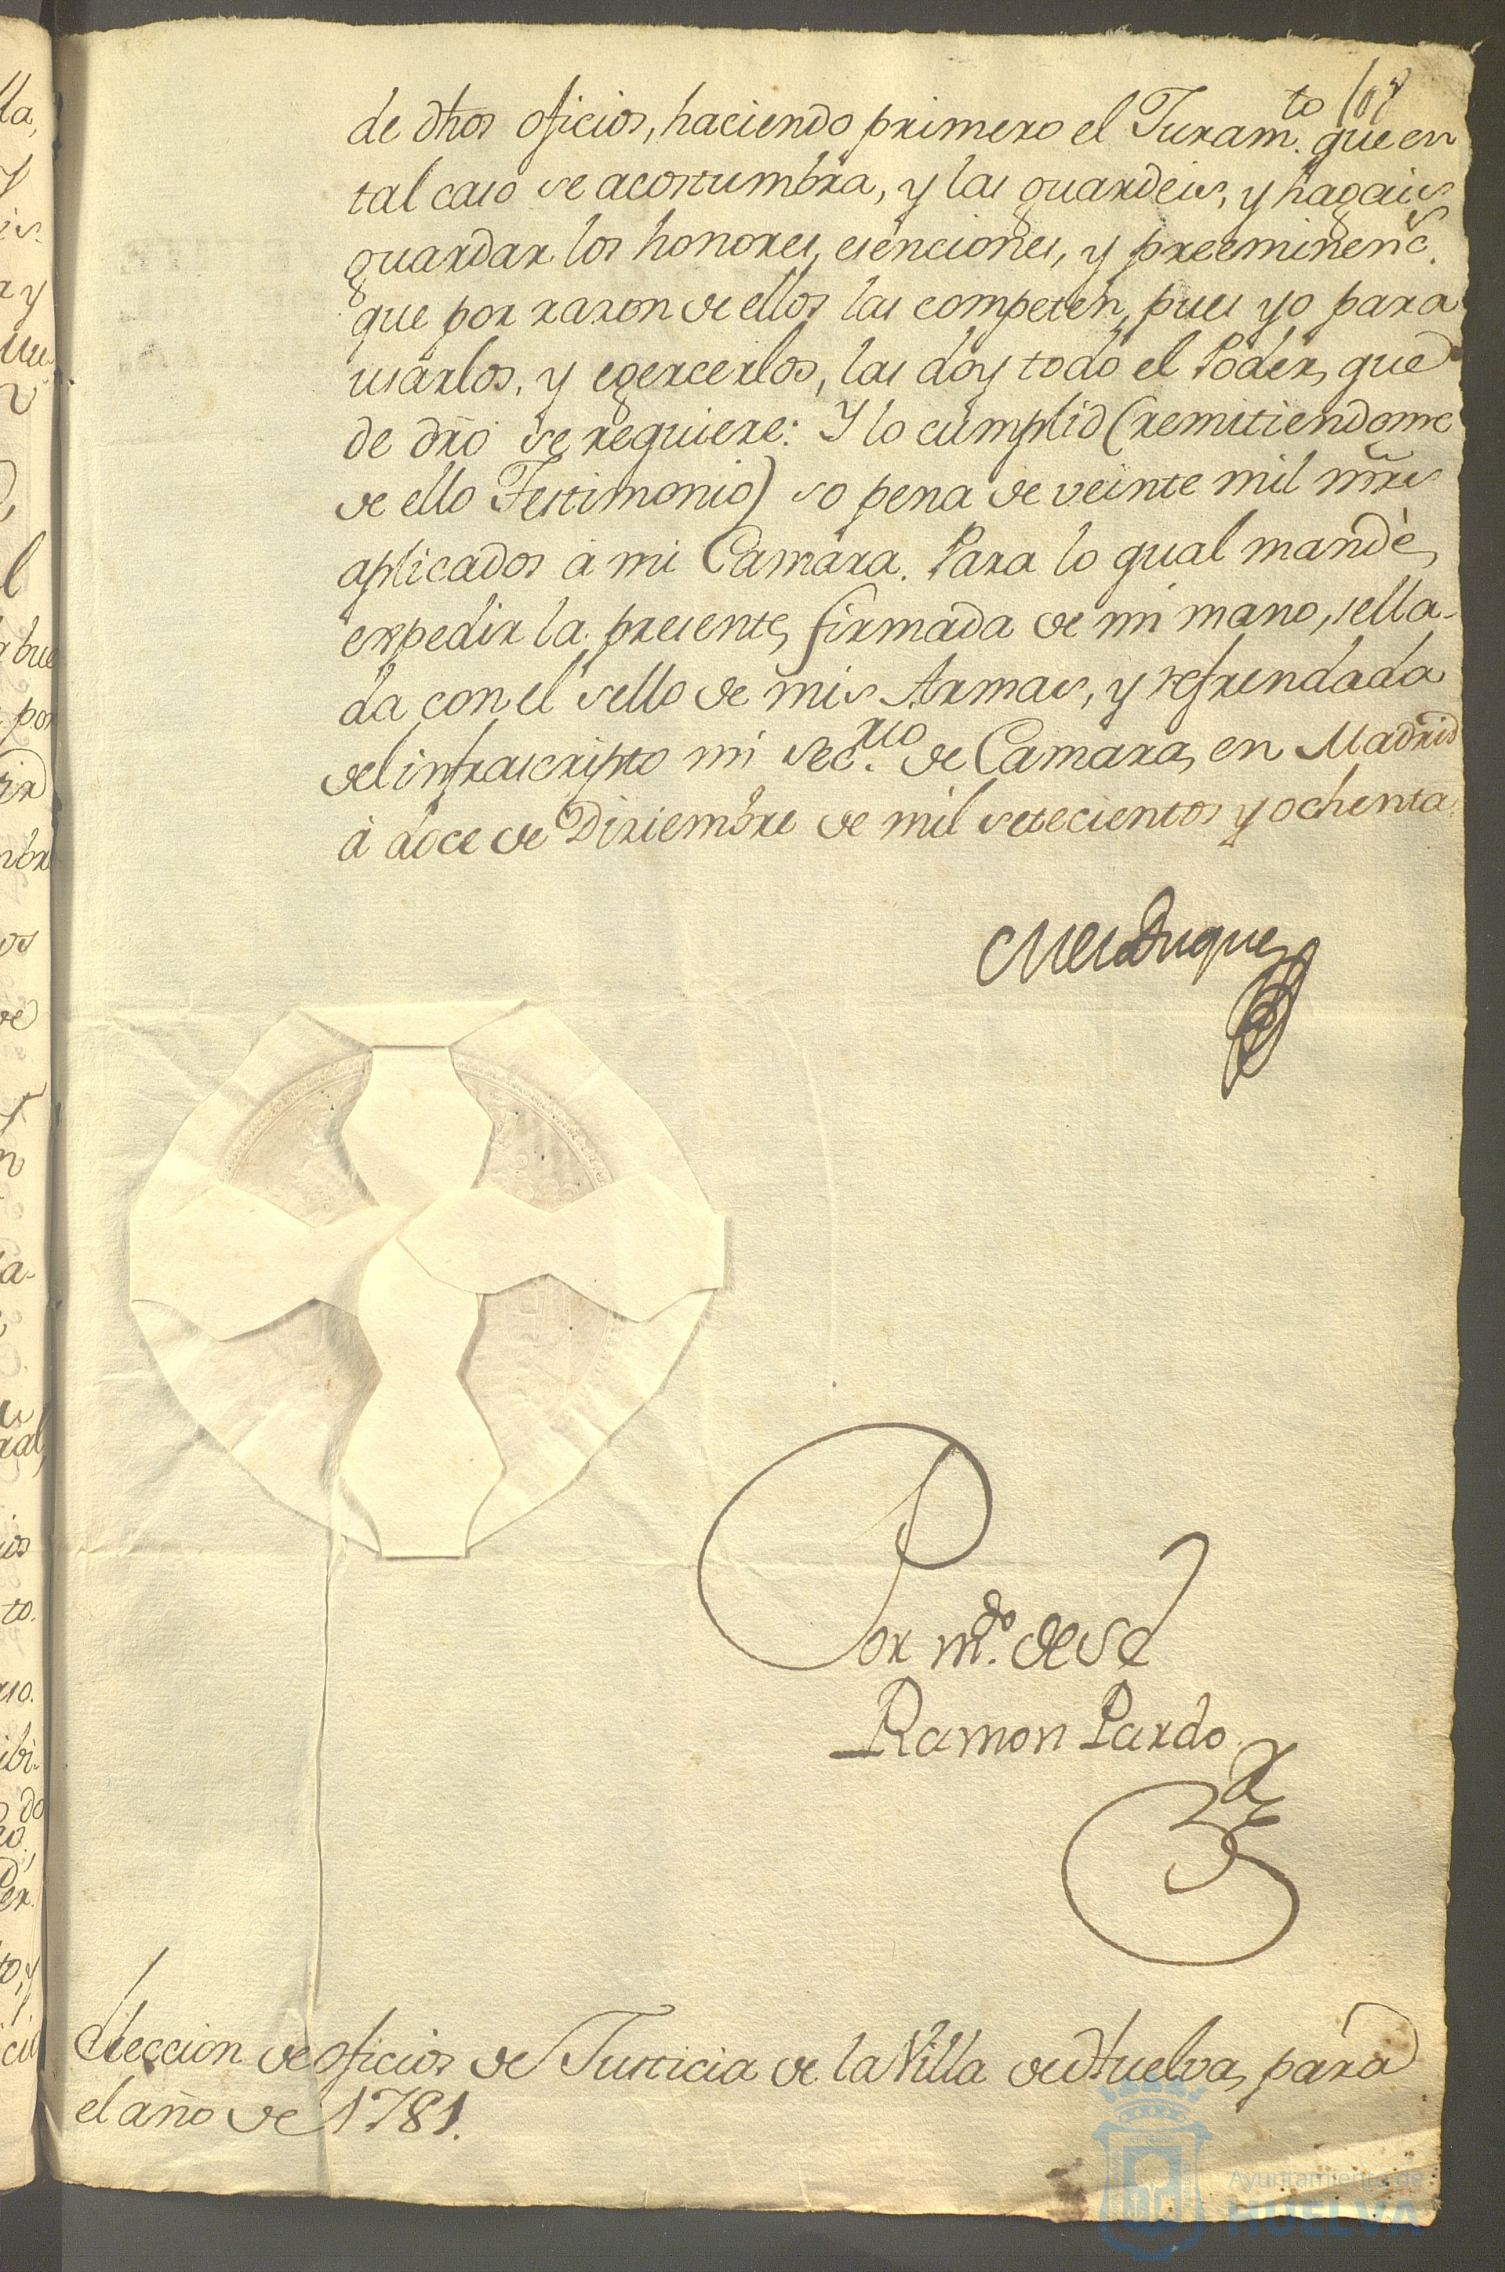 de dhos oficios, haciendo primero el Juramto. que en
tal caso se acostumbra, y las guardeis, y hagais
guardar los honores, esenciones, y preeminencs.
que por razon de ellos las competen, pues yo para
usarlos, y egercerlos, las doy todo el Poder, que
de dro se requiere: Y lo cumplid (remitiendome
de ello Testimonio) so pena de veinte mil mrs
aplicados á mi Camara. Para lo qual mandè
expedir la presente, firmada de mi mano, sella-
da con el sello de mis Armas, y refrendada
del infrascripto mi Secrio. de Camara, en Madrid
à doce de Diziembre de mil setecientos y ochenta
Duque
Por mdo. de S E
Ramon Pardo
Eleccion de oficios de Justicia de la Villa de Huelva, para
el año de 1781.
Ayuntamiento de
HUELVA